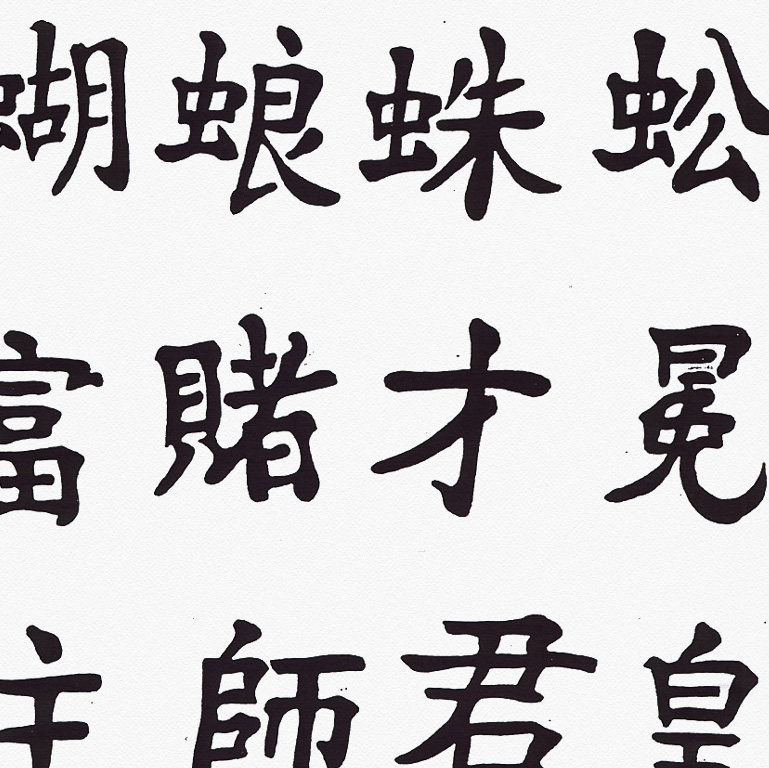 蝴蜋蛛蚣
富賭才冕
主師君皇